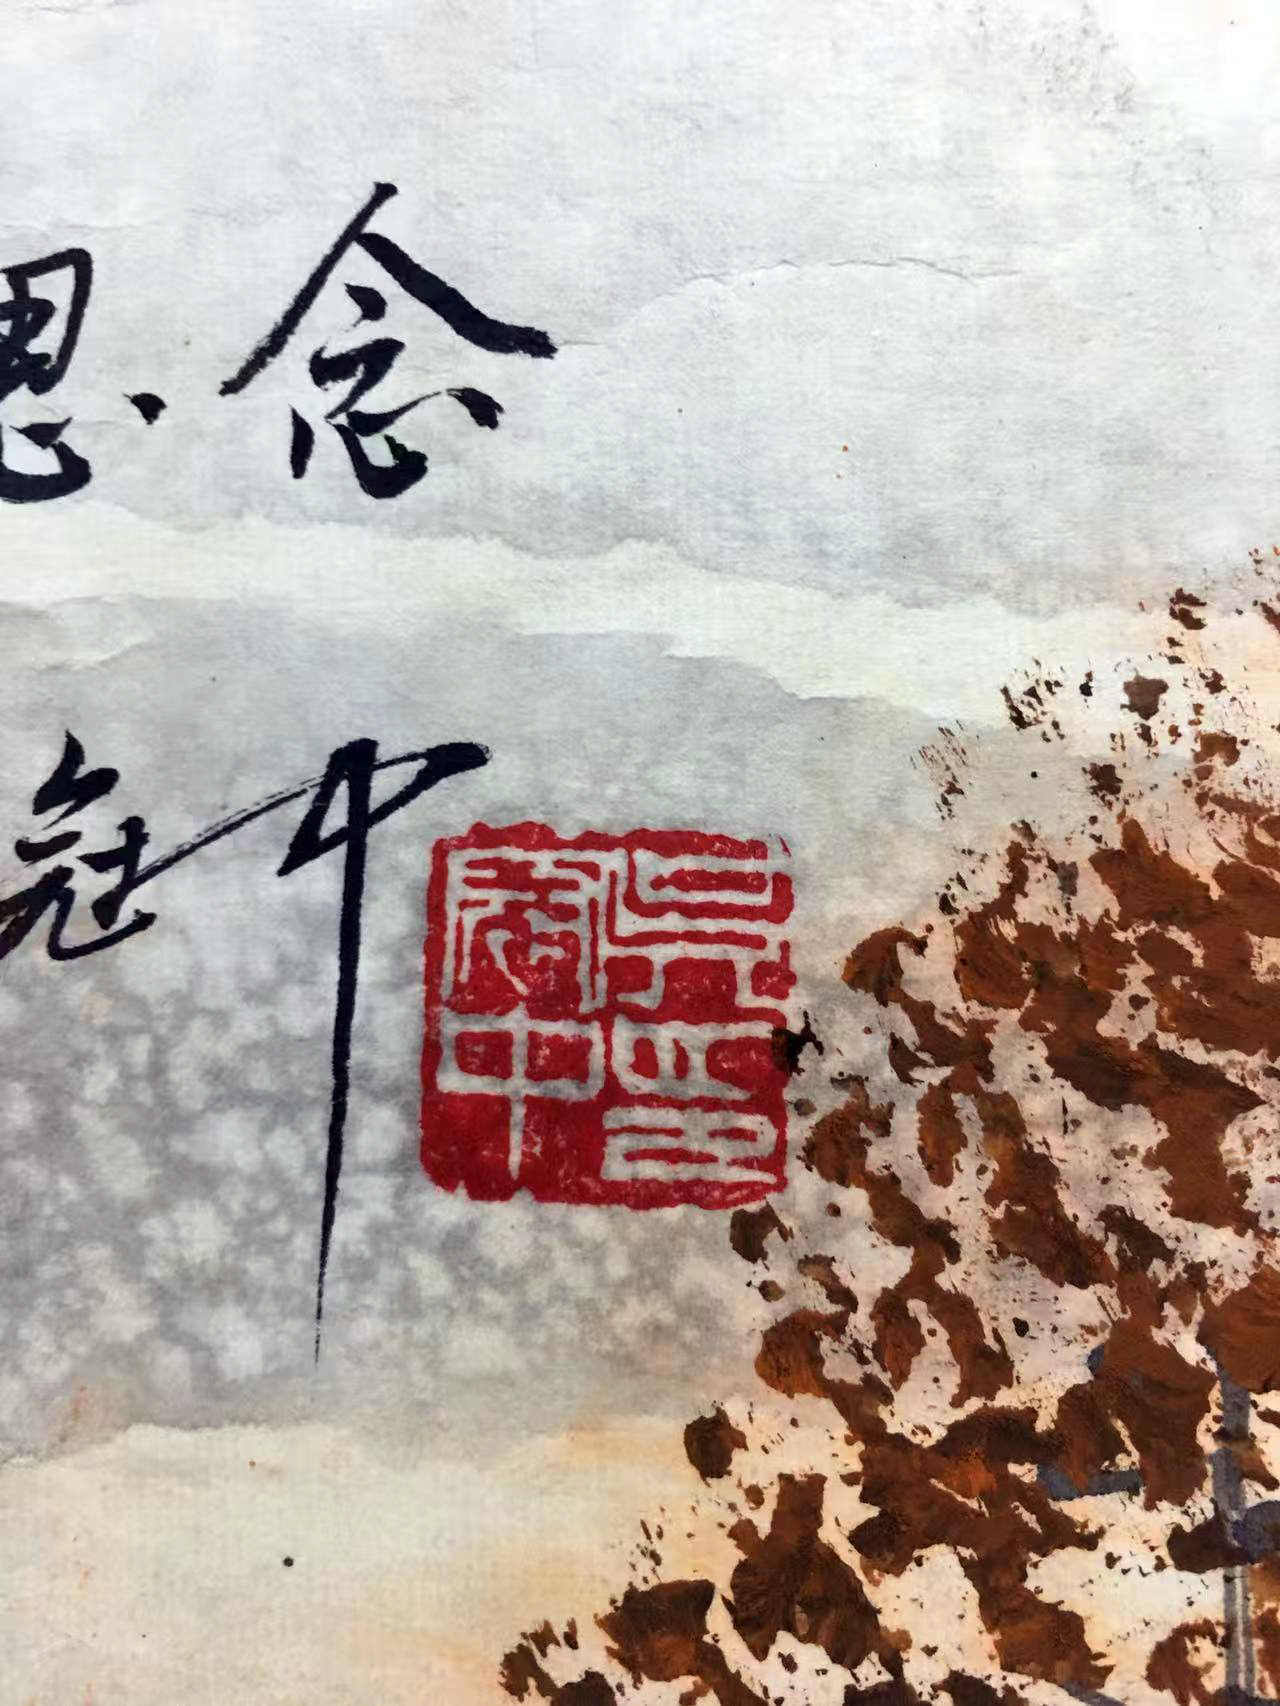 思念
冠中
吴冠中印